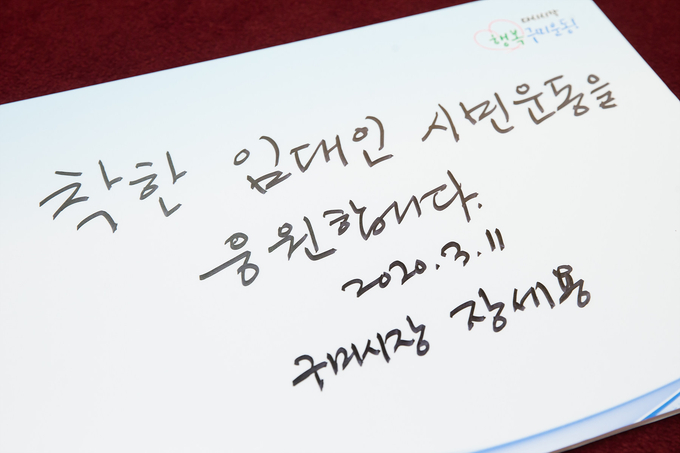 다시시작
행복 구미운동!
착한 임대인 시민운동을
응원합니다.
2020.3.11
구미시장 장세용